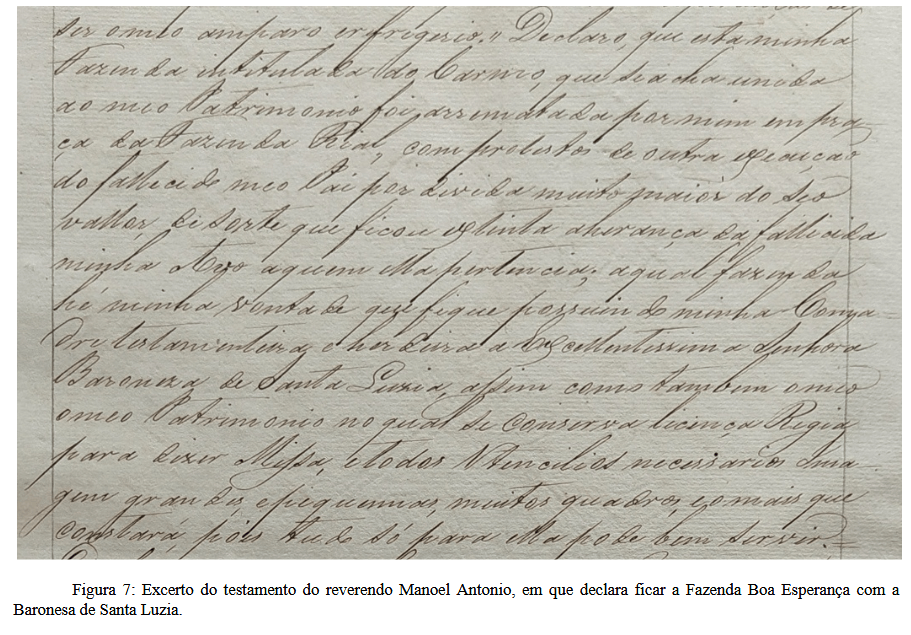 ser o meo amparo e refrigerio." Declaro, que esta minha
Fazenda intitulada do Carmo, que se acha unida
ao meo Patrimonio foi arrematada por mim em pra-
ça da Fazenda Real, com protestos de outra execução
do fallecido meo Pai por divida muito maior do seo
vallor, de sorte que ficou extinta a herança da fallecida
minha Avo a quem Ella pertencia; a qual fazenda
hé minha vontade que fique possuindo minha Coma
dre testamenteira, e herdeira a Excellentissima Senhora
Baroneza de Santa Luzia, assim como tambem o meo
o meo Patrimonio no qual se conserva licença Regia
para dizer Missa, e todos Utencilios necessarios Ima
gem grandes, e pequennas, muitos quadros, e o mais que
constará, pois tudo só para Ella pode bem servir.=
Figura 7: Excerto do testamento do reverendo Manoel Antonio, em que declara ficar a Fazenda Boa Esperança com a
Baronesa de Santa Luzia.